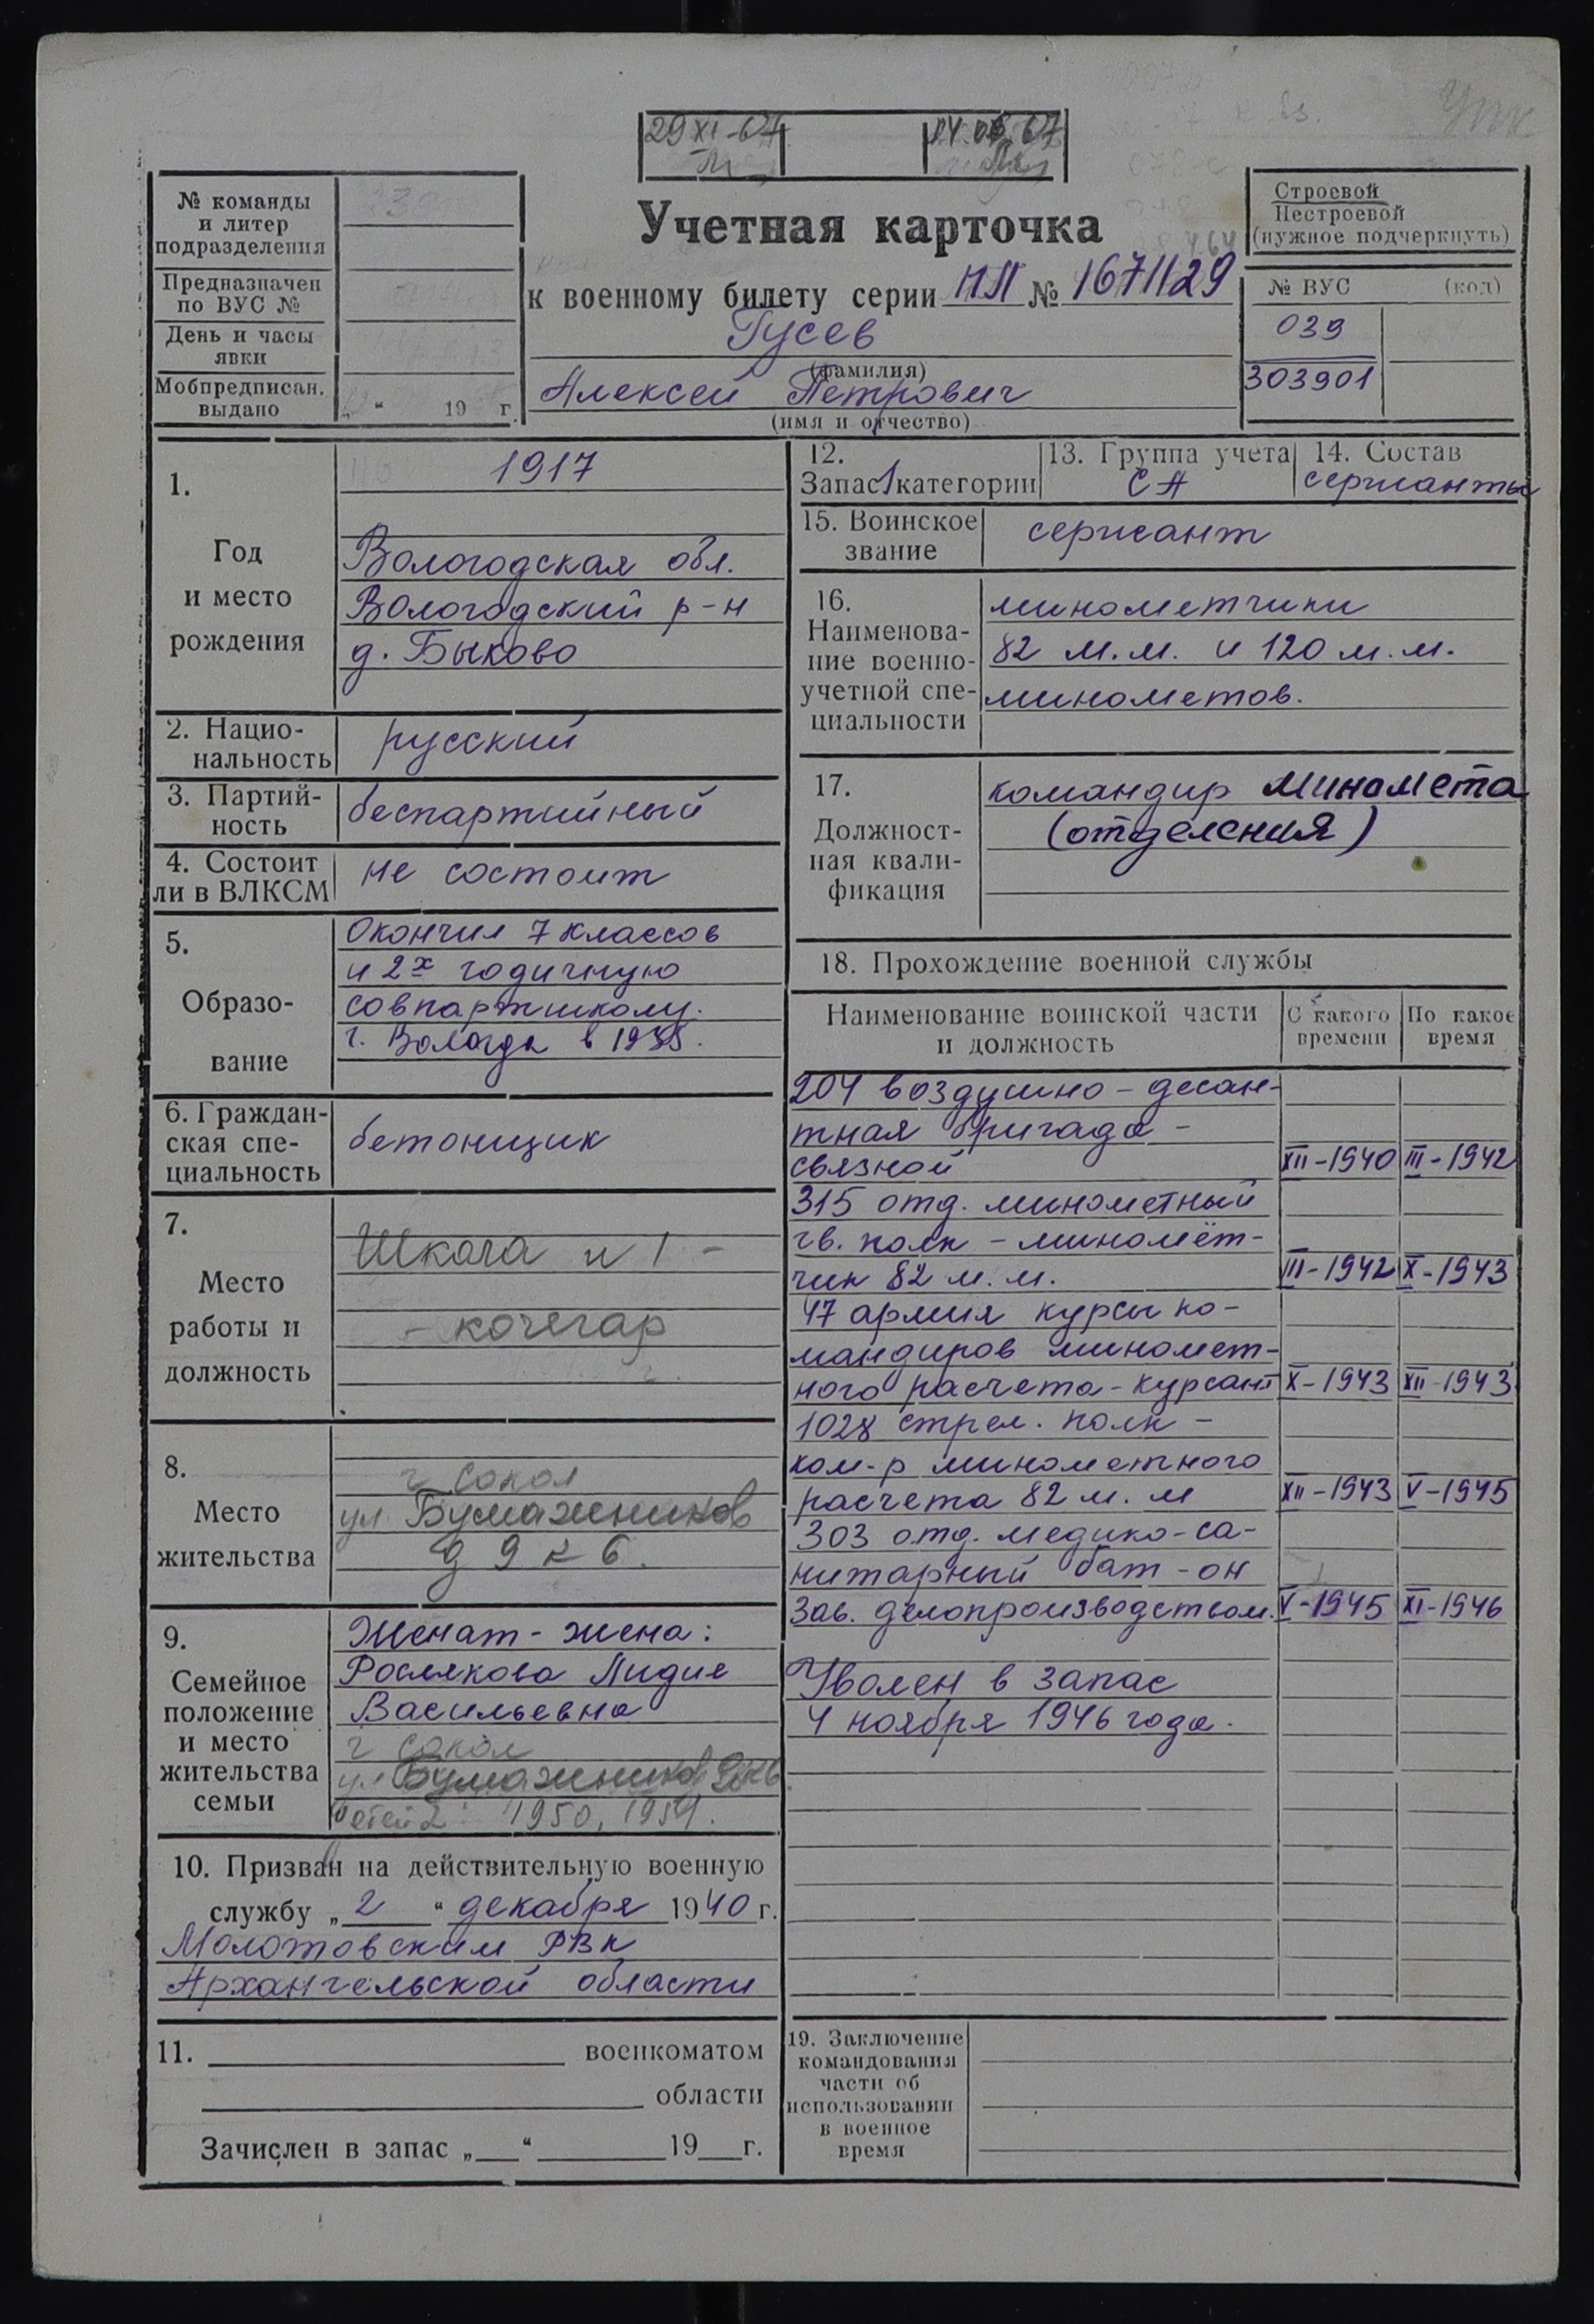 29 XI-67
14 06 67
№ команды
и литер
подразделения
Предназначен
по ВУС №
День и часы
явки
Мобпредписан.
выдано
„ “ 19 г.
Учетная карточка
к военному билету серии НП № 1671129
Гусев
(фамилия)
Алексей Петрович
(имя и отчество)
Строевой
Нестроевой
(нужное подчеркнуть)
№ ВУС (код)
039
303901
1.
Год
и место
рождения
1917
Вологодская обл.
Вологодский р-н
д. Быково
2. Нацио-
нальность
русский
3. Партий-
ность
беспартийный
4. Состоит
ли в ВЛКСМ
не состоит
5.
Образо-
вание
Окончил 7 классов
и 2х годичную
совпартшколу.
г. Вологда в 1935.
6. Граждан-
ская спе-
циальность
бетонщик
7.
Место
работы и
должность
Школа н 1 -
- кочегар
8.
Место
жительства
г. Сокол
ул. Бумажников
д 9 к 6.
9.
Семейное
положение
и место
жительства
семьи
Женат - жена:
Рослякова Лидия
Васильевна
г Сокол
ул Бумажников
Детей 2: 1950, 1954.
10. Призван на действительную военную
службу „ 2 “ декабря 1940 г.
Молотовским РВК
Архангельской области
11. военкоматом
области
Зачислен в запас „ “ 19 г.
12.
Запас 1 категории
13. Группа учета
СА
14. Состав
сержанты
15. Воинское
звание
сержант
16.
Наименова-
ние военно-
учетной спе-
циальности
минометчики
82 м.м. и 120 м.м.
минометов.
17.
Должност-
ная квали-
фикация
командир миномета
(отделения)
18. Прохождение военной службы
Наименование воинской части
и должность
С какого
времени
По какое
время
204 воздушно - десан-
тная бригада -
связной XII-1940 III-1942
315 отд. минометный
гв. полк - миномёт-
чик 82 м.м. III-1942 X-1943
47 армия курсы ко-
мандиров миномет-
ного расчета - курсант X-1943 XII-1943
1028 стрел. полк -
ком-р минометного
расчета 82 м.м XII-1943 V-1945
303 отд. медико-са-
нитарный бат-он
Зав. делопроизводством. V-1945 XI-1946
Уволен в запас
4 ноября 1946 года.
19. Заключение
командования
части об
использовании
в военное
время